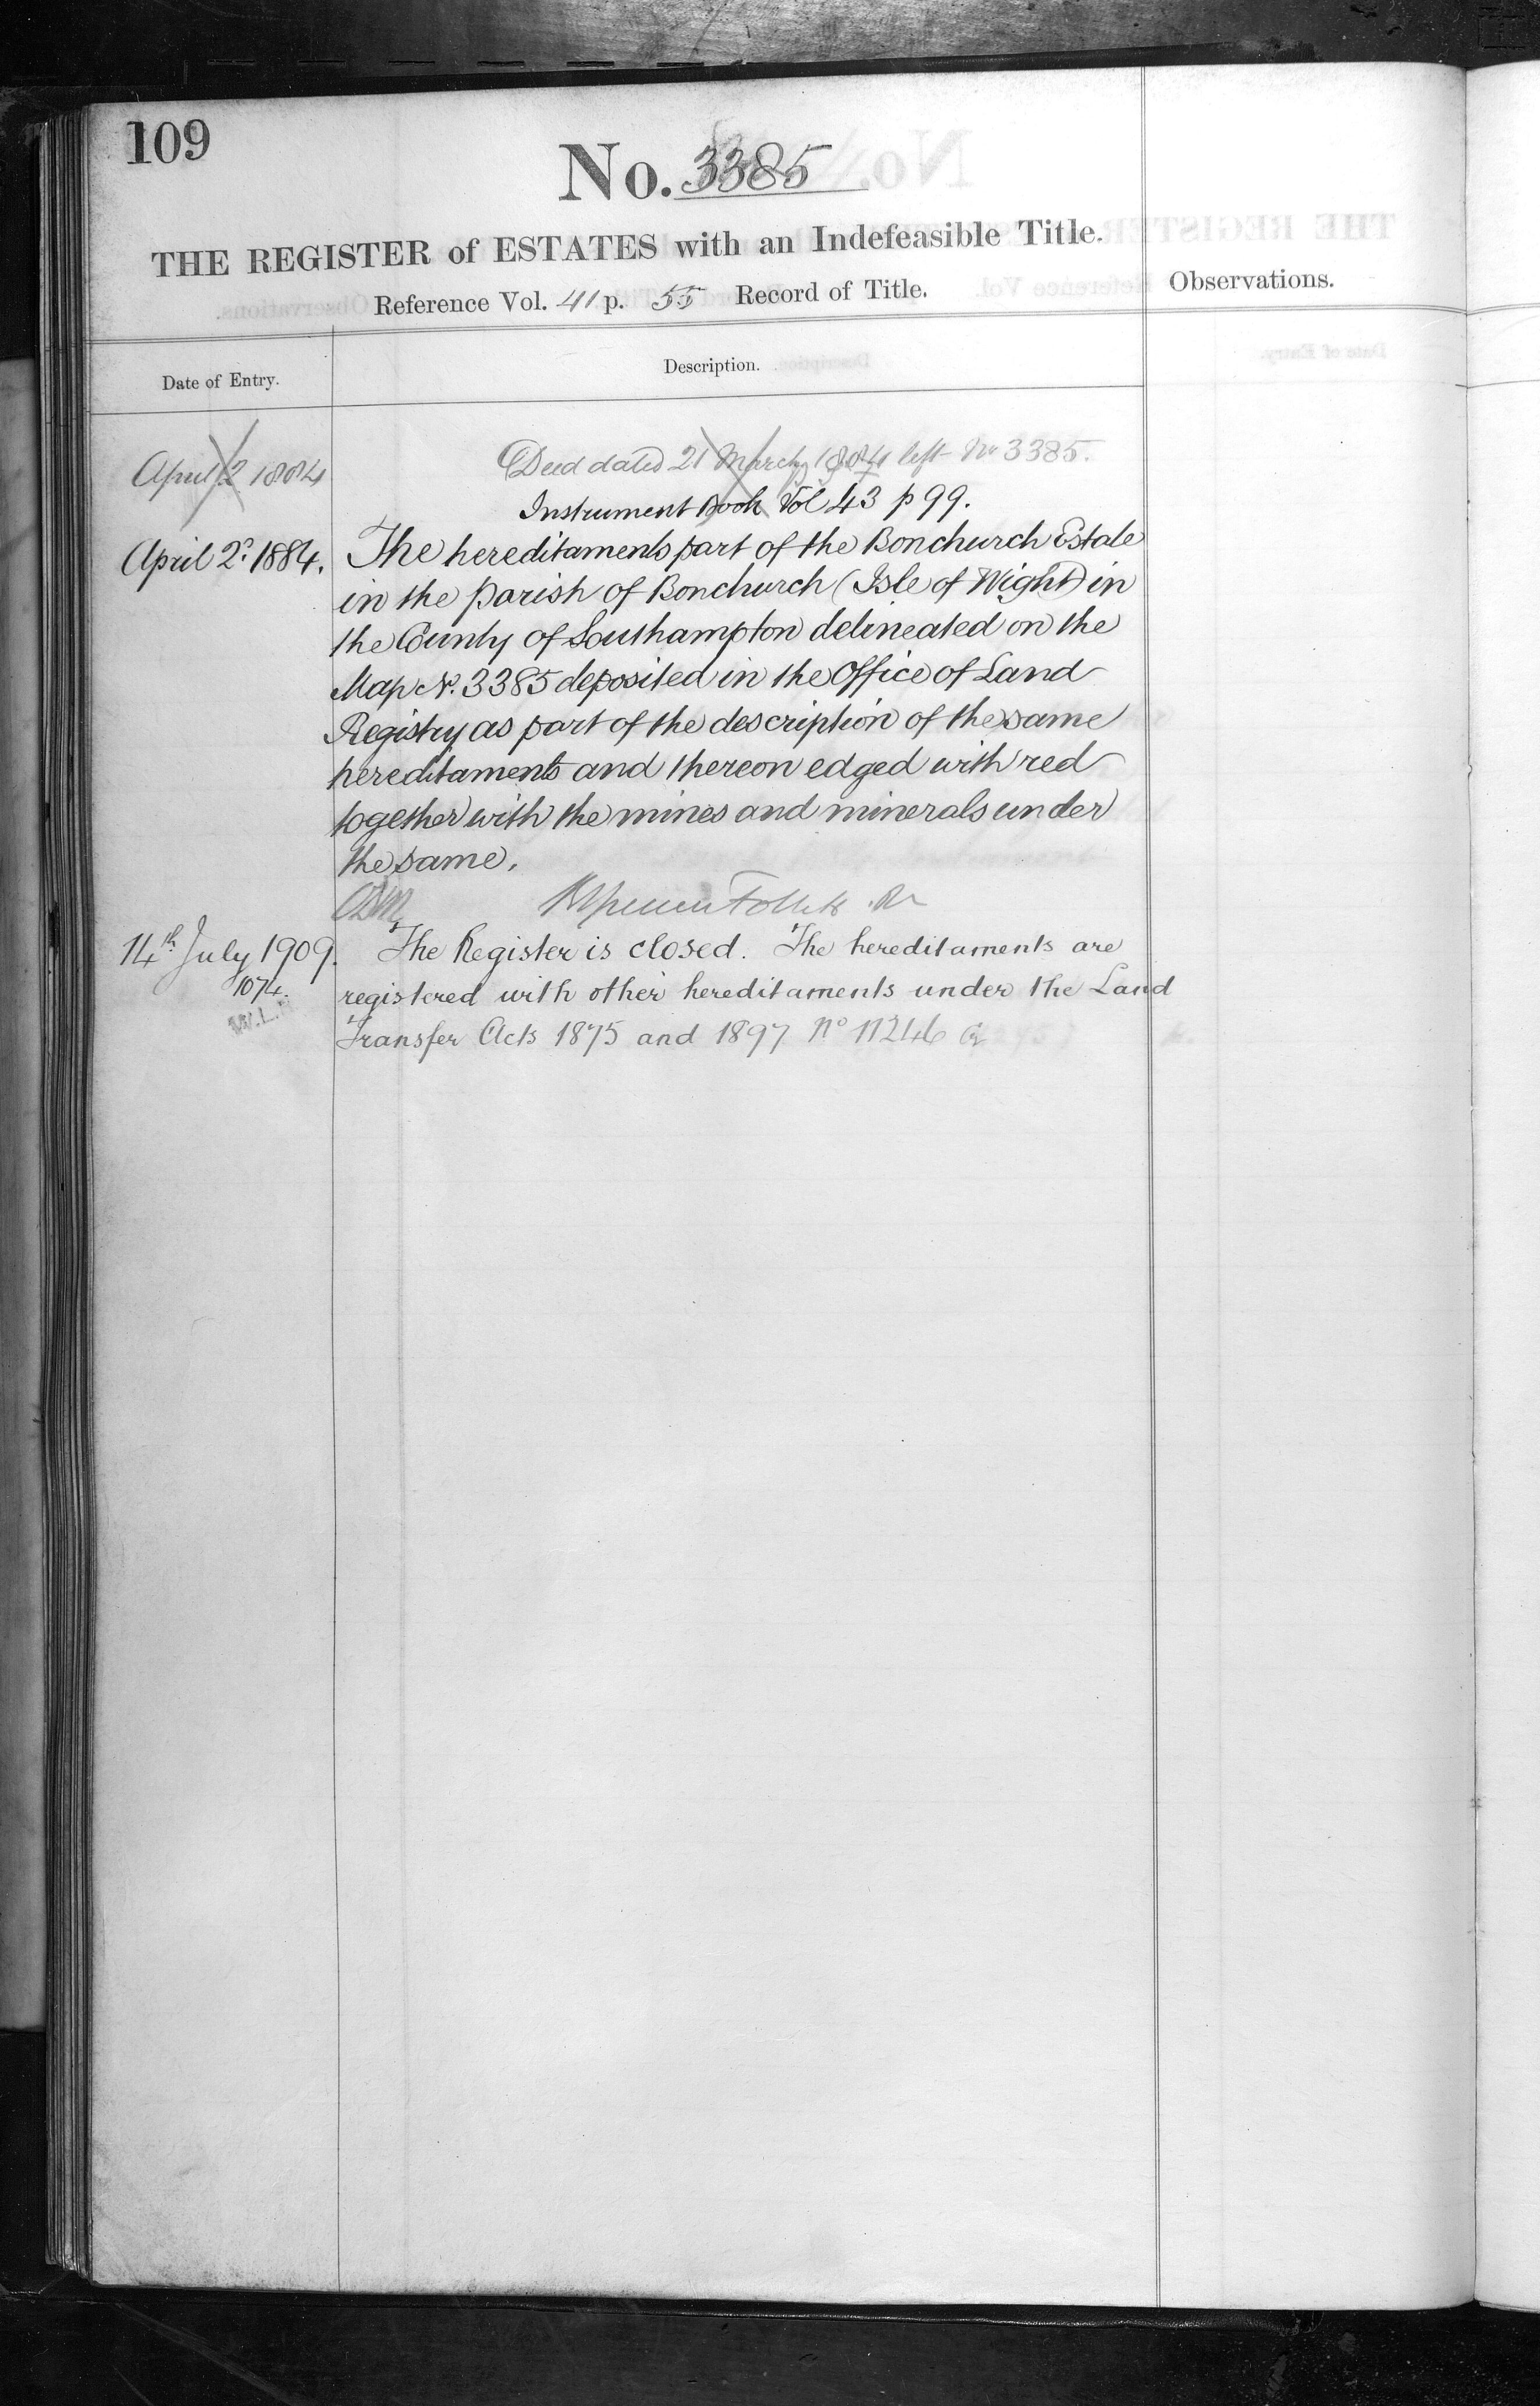 109
No. 3385
THE REGISTER of ESTATES with an Indefeasible Title.
Reference Vol. 41 p. 55 Record of Title.
Observations.
Date of Entry.
Description.
April 2 1884
Deed dated 21 March 1884 left No 3385.
Instrument Book Vol 43 p 99.
April 2d 1884.
The hereditaments part of the Bonchurch Estate
in the parish of Bonchurch (Isle of Wight) in
the County of Southampton delineated on the
Map No. 3385 deposited in the Office of Land
Registry as part of the description of the same
hereditaments and thereon edged with red
together with the mines and minerals under
the same.
14th July 1909.
1074.
W.L.
The Register is closed. The hereditaments are
registered with other hereditaments under the Land
Transfer Acts 1875 and 1897 No 11246